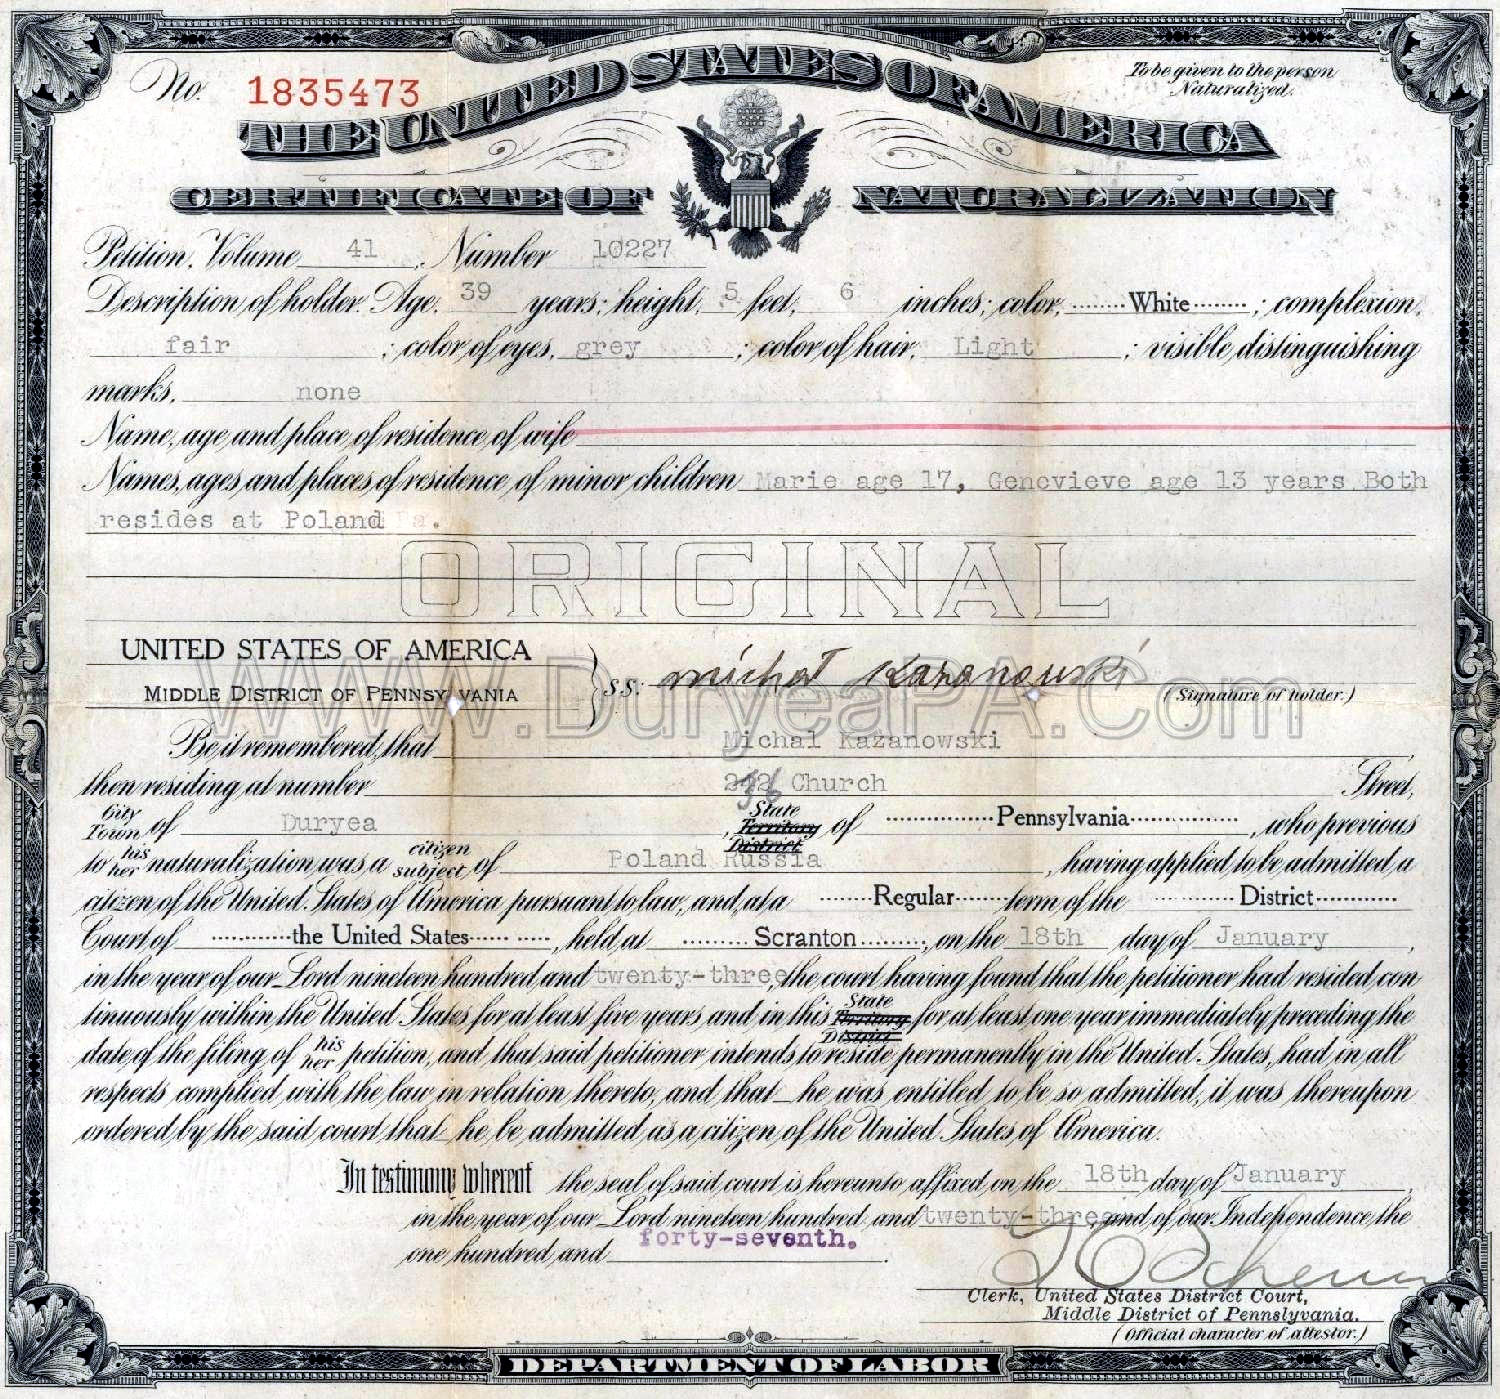 No. 1835473
To be given to the person
Naturalized.
THE UNITED STATES OF AMERICA
CERTIFICATE OF NATURALIZATION
Petition, Volume 41, Number 10227
Description of holder. Age, 39 years; height, 5 feet, 6 inches; color, White; complexion,
fair; color of eyes, grey; color of hair, Light; visible distinguishing
marks, none
Name, age and place of residence of wife
Names, ages and places of residence of minor children Marie age 17, Genevieve age 13 years Both
resides at Poland
ORIGINAL
UNITED STATES OF AMERICA
MIDDLE DISTRICT OF PENNSYLVANIA } S.S: Michał Kazanowski
(Signature of holder.)
www.DuryeaPA.Com
Be it remembered, that Michal Kazanowski
then residing at number Church Street,
City Town of Duryea, State Territory District of Pennsylvania, who previous
to his her naturalization was a citizen subject of Poland Russia, having applied to be admitted a
citizen of the United States of America pursuant to law, and, at a Regular term of the District
Court of the United States, held at Scranton, on the 18th day of January,
in the year of our Lord nineteen hundred and twenty-three, the court having found that the petitioner had resided con
tinuously within the United States for at least five years and in this State Territory District for at least one year immediately preceding the
date of the filing of his her petition, and that said petitioner intends to reside permanently in the United States, had in all
respects complied with the law in relation thereto, and that he was entitled to be so admitted, it was thereupon
ordered by the said court that he be admitted as a citizen of the United States of America.
In testimony whereof the seal of said court is hereunto affixed on the 18th day of January,
in the year of our Lord nineteen hundred and twenty-three and of our Independence the
one hundred and forty-seventh.
Clerk, United States District Court,
Middle District of Pennslyvania.
(Official character of attestor.)
DEPARTMENT OF LABOR